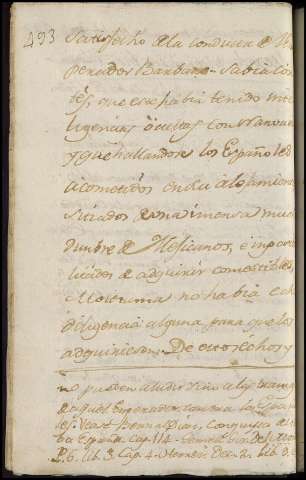 493
satisfecho de la conducta de Em
perador Barbaro. Sabia Cor
tés, que ese habia tenido inte
ligencias ocultas con Narvaez
y que hallandose los Españoles
acometidos en su alojamiento
sitiados de una inmensa muche
dumbre de Mesicanos, e imposibi
litados de adquirir comestibles,
Motezuma no habia echo
diligencia alguna para que los
adquiriesen. De estos echos y
no pueden aludir sino a las tramas
de aquel Emperador contra los Españo
les. Vease Bernal Diaz, Conquista de la
Nueba España Cap. 114
P. 6. lib. 3. Cap. 4. Herrera Dec. 2. lib.